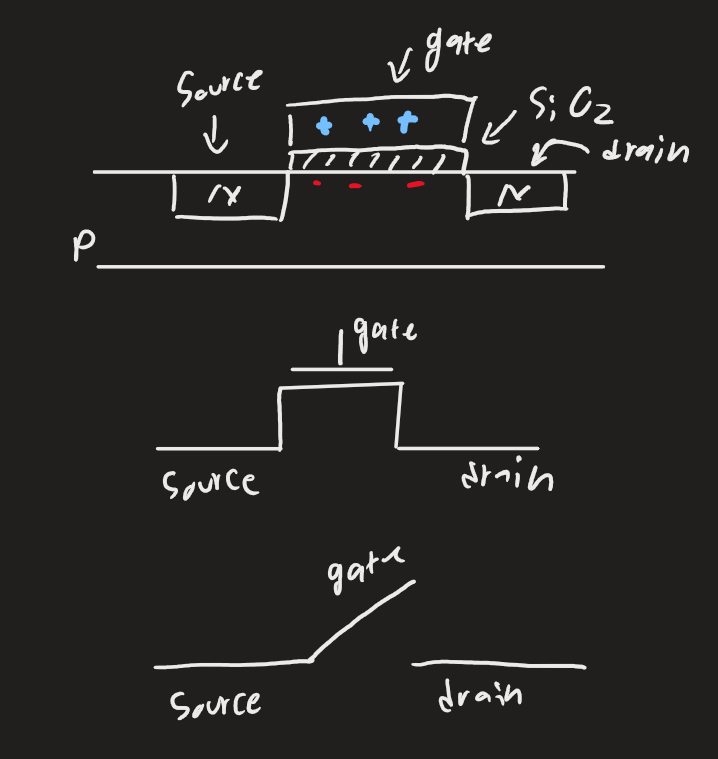 gate
Source
SiO2
drain
N
N
P
gate
Source
drain
gate
Source
drain